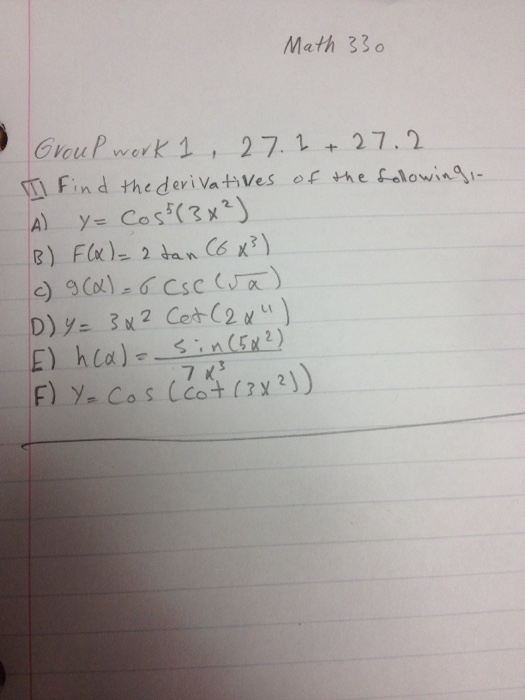 Math 330
Group work 1, 27.1 + 27.2
I) Find the derivatives of the following:-
A) y = Cos⁵(3x²)
B) F(x) = 2 tan (6x³)
C) g(x) = 6 csc (√x)
D) y = 3x² Cot (2x⁴)
E) h(x) = sin(5x²)
7x³
F) y = Cos (Cot (3x²))